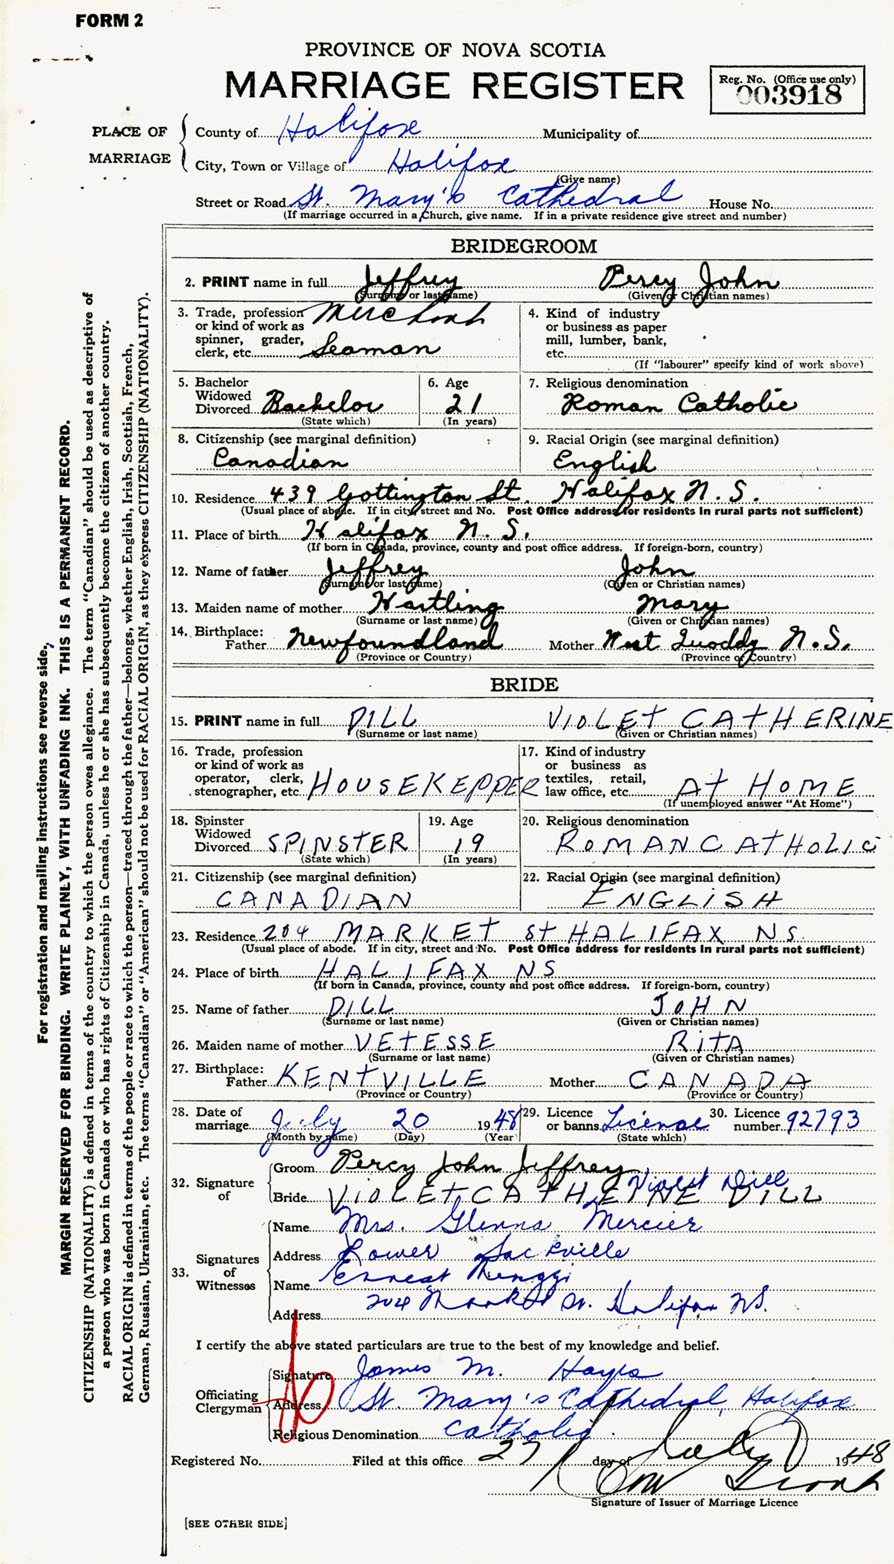 FORM 2
PROVINCE OF NOVA SCOTIA
MARRIAGE REGISTER
Reg. No. (Office use only)
003918
PLACE OF MARRIAGE
County of Halifax Municipality of
City, Town or Village of Halifax
(Give name)
Street or Road St. Mary's Cathedral House No.
(If marriage occurred in a Church, give name. If in a private residence give street and number)
For registration and mailing instructions see reverse side.
MARGIN RESERVED FOR BINDING. WRITE PLAINLY, WITH UNFADING INK. THIS IS A PERMANENT RECORD.
CITIZENSHIP (NATIONALITY) is defined in terms of the country to which the person owes allegiance. The term "Canadian" should be used as descriptive of
a person who was born in Canada or who has rights of Citizenship in Canada, unless he or she has subsequently become the citizen of another country.
RACIAL ORIGIN is defined in terms of the people or race to which the person—traced through the father—belongs, whether English, Irish, Scottish, French,
German, Russian, Ukrainian, etc. The terms "Canadian" or "American" should not be used for RACIAL ORIGIN, as they express CITIZENSHIP (NATIONALITY).
BRIDEGROOM
2. PRINT name in full Jeffrey Percy John
(Surname or last name) (Given or Christian names)
3. Trade, profession or kind of work as spinner, grader, clerk, etc. Merchant Seaman
4. Kind of industry or business as paper mill, lumber, bank, etc.
(If "labourer" specify kind of work above)
5. Bachelor Widowed Divorced Bachelor
(State which)
6. Age 21
(In years)
7. Religious denomination
Roman Catholic
8. Citizenship (see marginal definition)
Canadian
9. Racial Origin (see marginal definition)
English
10. Residence 439 Gottington St. Halifax N.S.
(Usual place of abode. If in city, street and No. Post Office address for residents in rural parts not sufficient)
11. Place of birth Halifax N.S.
(If born in Canada, province, county and post office address. If foreign-born, country)
12. Name of father Jeffrey John
(Surname or last name) (Given or Christian names)
13. Maiden name of mother Hartling Mary
(Surname or last name) (Given or Christian names)
14. Birthplace: Father Newfoundland Mother West Quoddy N.S.
(Province or Country) (Province or Country)
BRIDE
15. PRINT name in full DILL VIOLET CATHERINE
(Surname or last name) (Given or Christian names)
16. Trade, profession or kind of work as operator, clerk, stenographer, etc. HOUSEKEPPER
17. Kind of industry or business as textiles, retail, law office, etc. At HOME
(If unemployed answer "At Home")
18. Spinster Widowed Divorced SPINSTER
(State which)
19. Age 19
(In years)
20. Religious denomination
ROMAN CATHOLIC
21. Citizenship (see marginal definition)
CANADIAN
22. Racial Origin (see marginal definition)
ENGLISH
23. Residence 204 MARKET St HALIFAX NS
(Usual place of abode. If in city, street and No. Post Office address for residents in rural parts not sufficient)
24. Place of birth HALIFAX NS
(If born in Canada, province, county and post office address. If foreign-born, country)
25. Name of father DILL JOHN
(Surname or last name) (Given or Christian names)
26. Maiden name of mother VETESSE RITA
(Surname or last name) (Given or Christian names)
27. Birthplace: Father KENTVILLE Mother CANADA
(Province or Country) (Province or Country)
28. Date of marriage July 20 1948
(Month by name) (Day) (Year)
29. Licence or banns License
(State which)
30. Licence number 92793
32. Signature of
Groom Percy John Jeffrey
Violet Dill
Bride VIOLET CATHERINE DILL
33. Signatures of Witnesses
Name Mrs. Glenna Mercier
Address Lower Sackville
Name Ernest
Address 204 Market St. Halifax NS.
I certify the above stated particulars are true to the best of my knowledge and belief.
Officiating Clergyman
Signature James M. Hayes
Address St. Mary's Cathedral, Halifax
Religious Denomination Catholic.
Registered No. Filed at this office 27 day of July 1948
Signature of Issuer of Marriage Licence
[SEE OTHER SIDE]